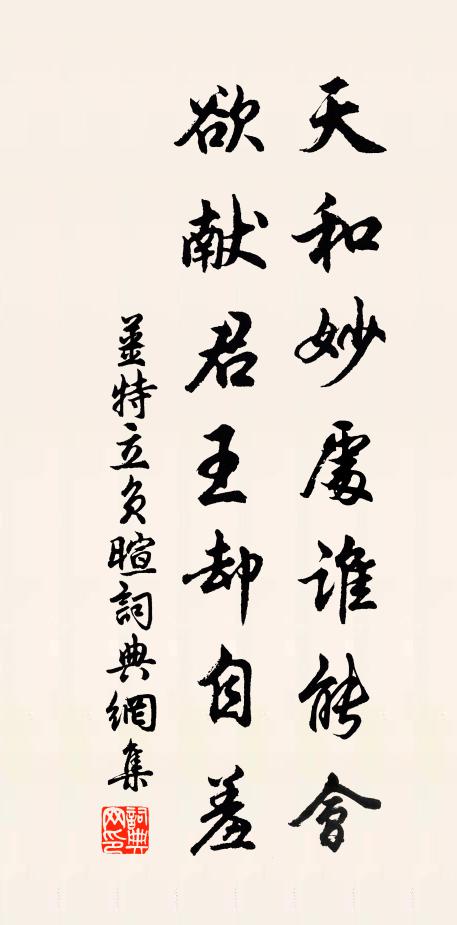 天和妙處誰能會
欲献君王却自羞
薑特立負暄詞典網集
詞典網印